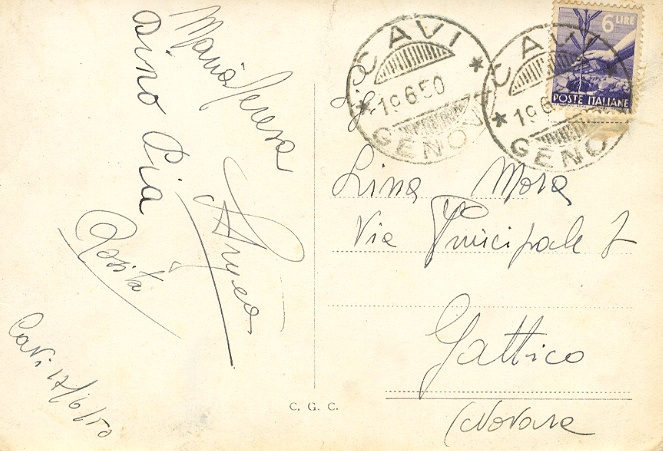 Maria Teresa
Dino Pia
Rosita
Cavi 17/6/50
C. G. C.
CAVI
19 6 50
GENOVA
CAVI
GENO
6 LIRE
POSTE ITALIANE
Lina Mora
Via Principale 7
Gattico
(Novara